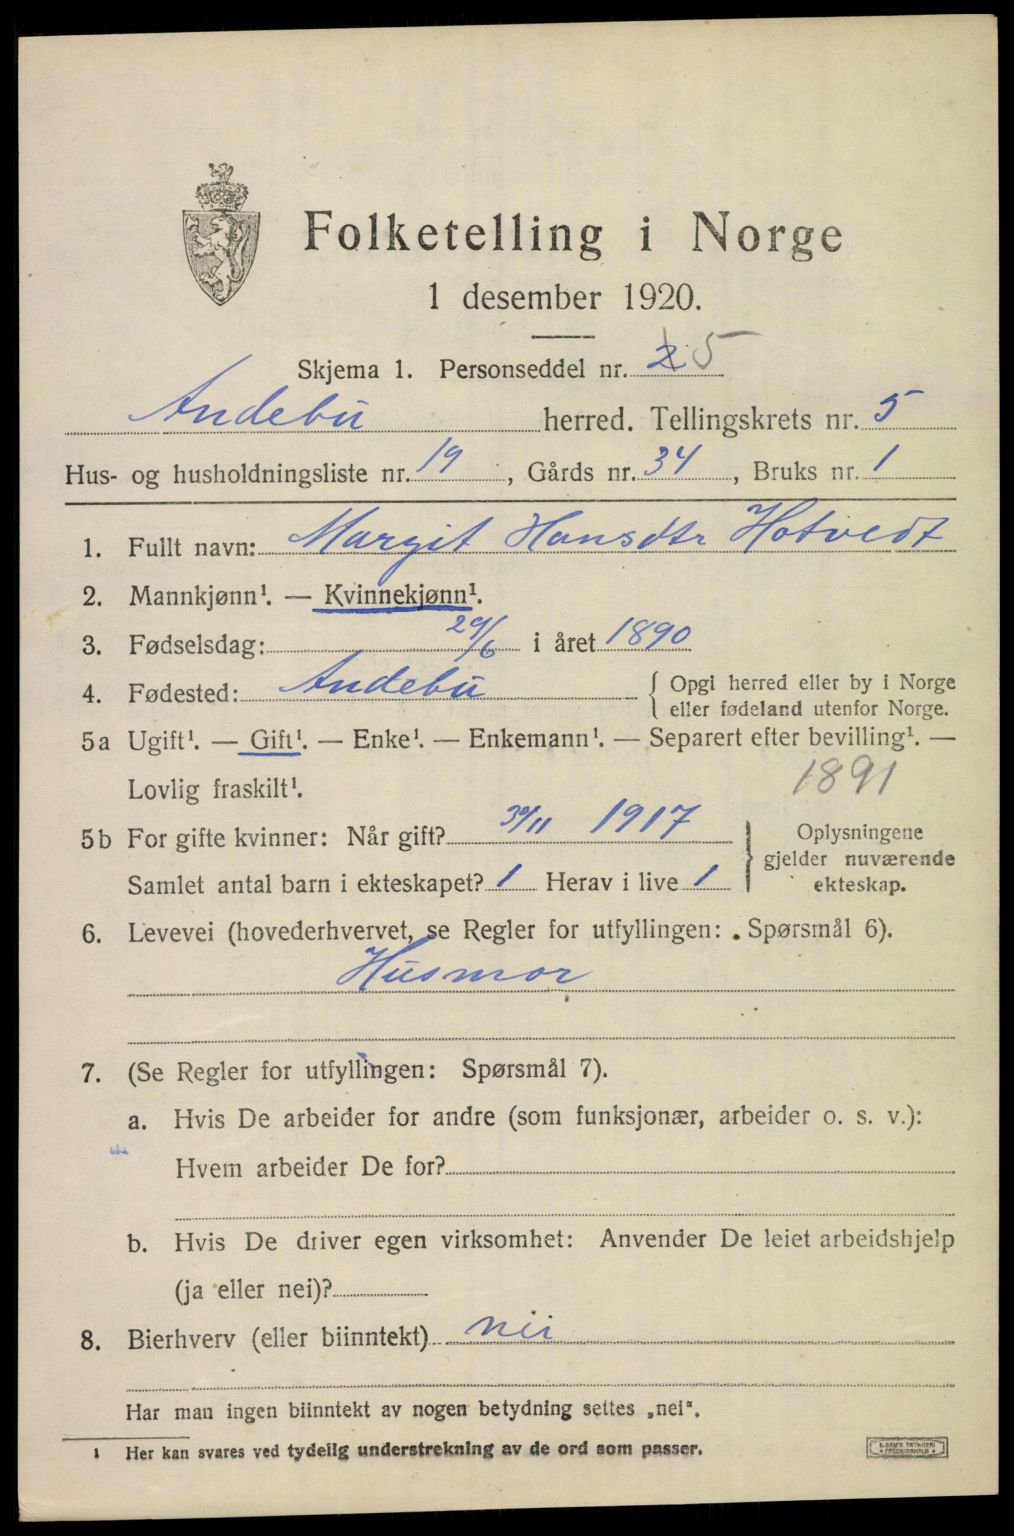 Folketelling i Norge
1 desember 1920.
Skjema 1. Personseddel nr. 2 5
Andebu herred. Tellingskrets nr. 5
Hus- og husholdningsliste nr. 19, Gårds nr. 34, Bruks nr. 1
1. Fullt navn: Margit Hansdtr Hotvedt
2. Mannkjønn¹. — Kvinnekjønn¹.
3. Fødselsdag: 29/6 i året 1890
4. Fødested: Andebu { Opgi herred eller by i Norge
eller fødeland utenfor Norge.
5a Ugift¹. — Gift¹. — Enke¹. — Enkemann¹. — Separert efter bevilling¹. —
Lovlig fraskilt¹. 1891
5b For gifte kvinner: Når gift? 30/11 1917
Samlet antal barn i ekteskapet? 1 Herav i live 1
} Oplysningene
gjelder nuværende
ekteskap.
6. Levevei (hovederhvervet, se Regler for utfyllingen: Spørsmål 6).
Husmor
7. (Se Regler for utfyllingen: Spørsmål 7).
a. Hvis De arbeider for andre (som funksjonær, arbeider o. s. v.):
Hvem arbeider De for?
b. Hvis De driver egen virksomhet: Anvender De leiet arbeidshjelp
(ja eller nei)?
8. Bierhverv (eller biinntekt) nei
Har man ingen biinntekt av nogen betydning settes „nei".
1 Her kan svares ved tydelig understrekning av de ord som passer.